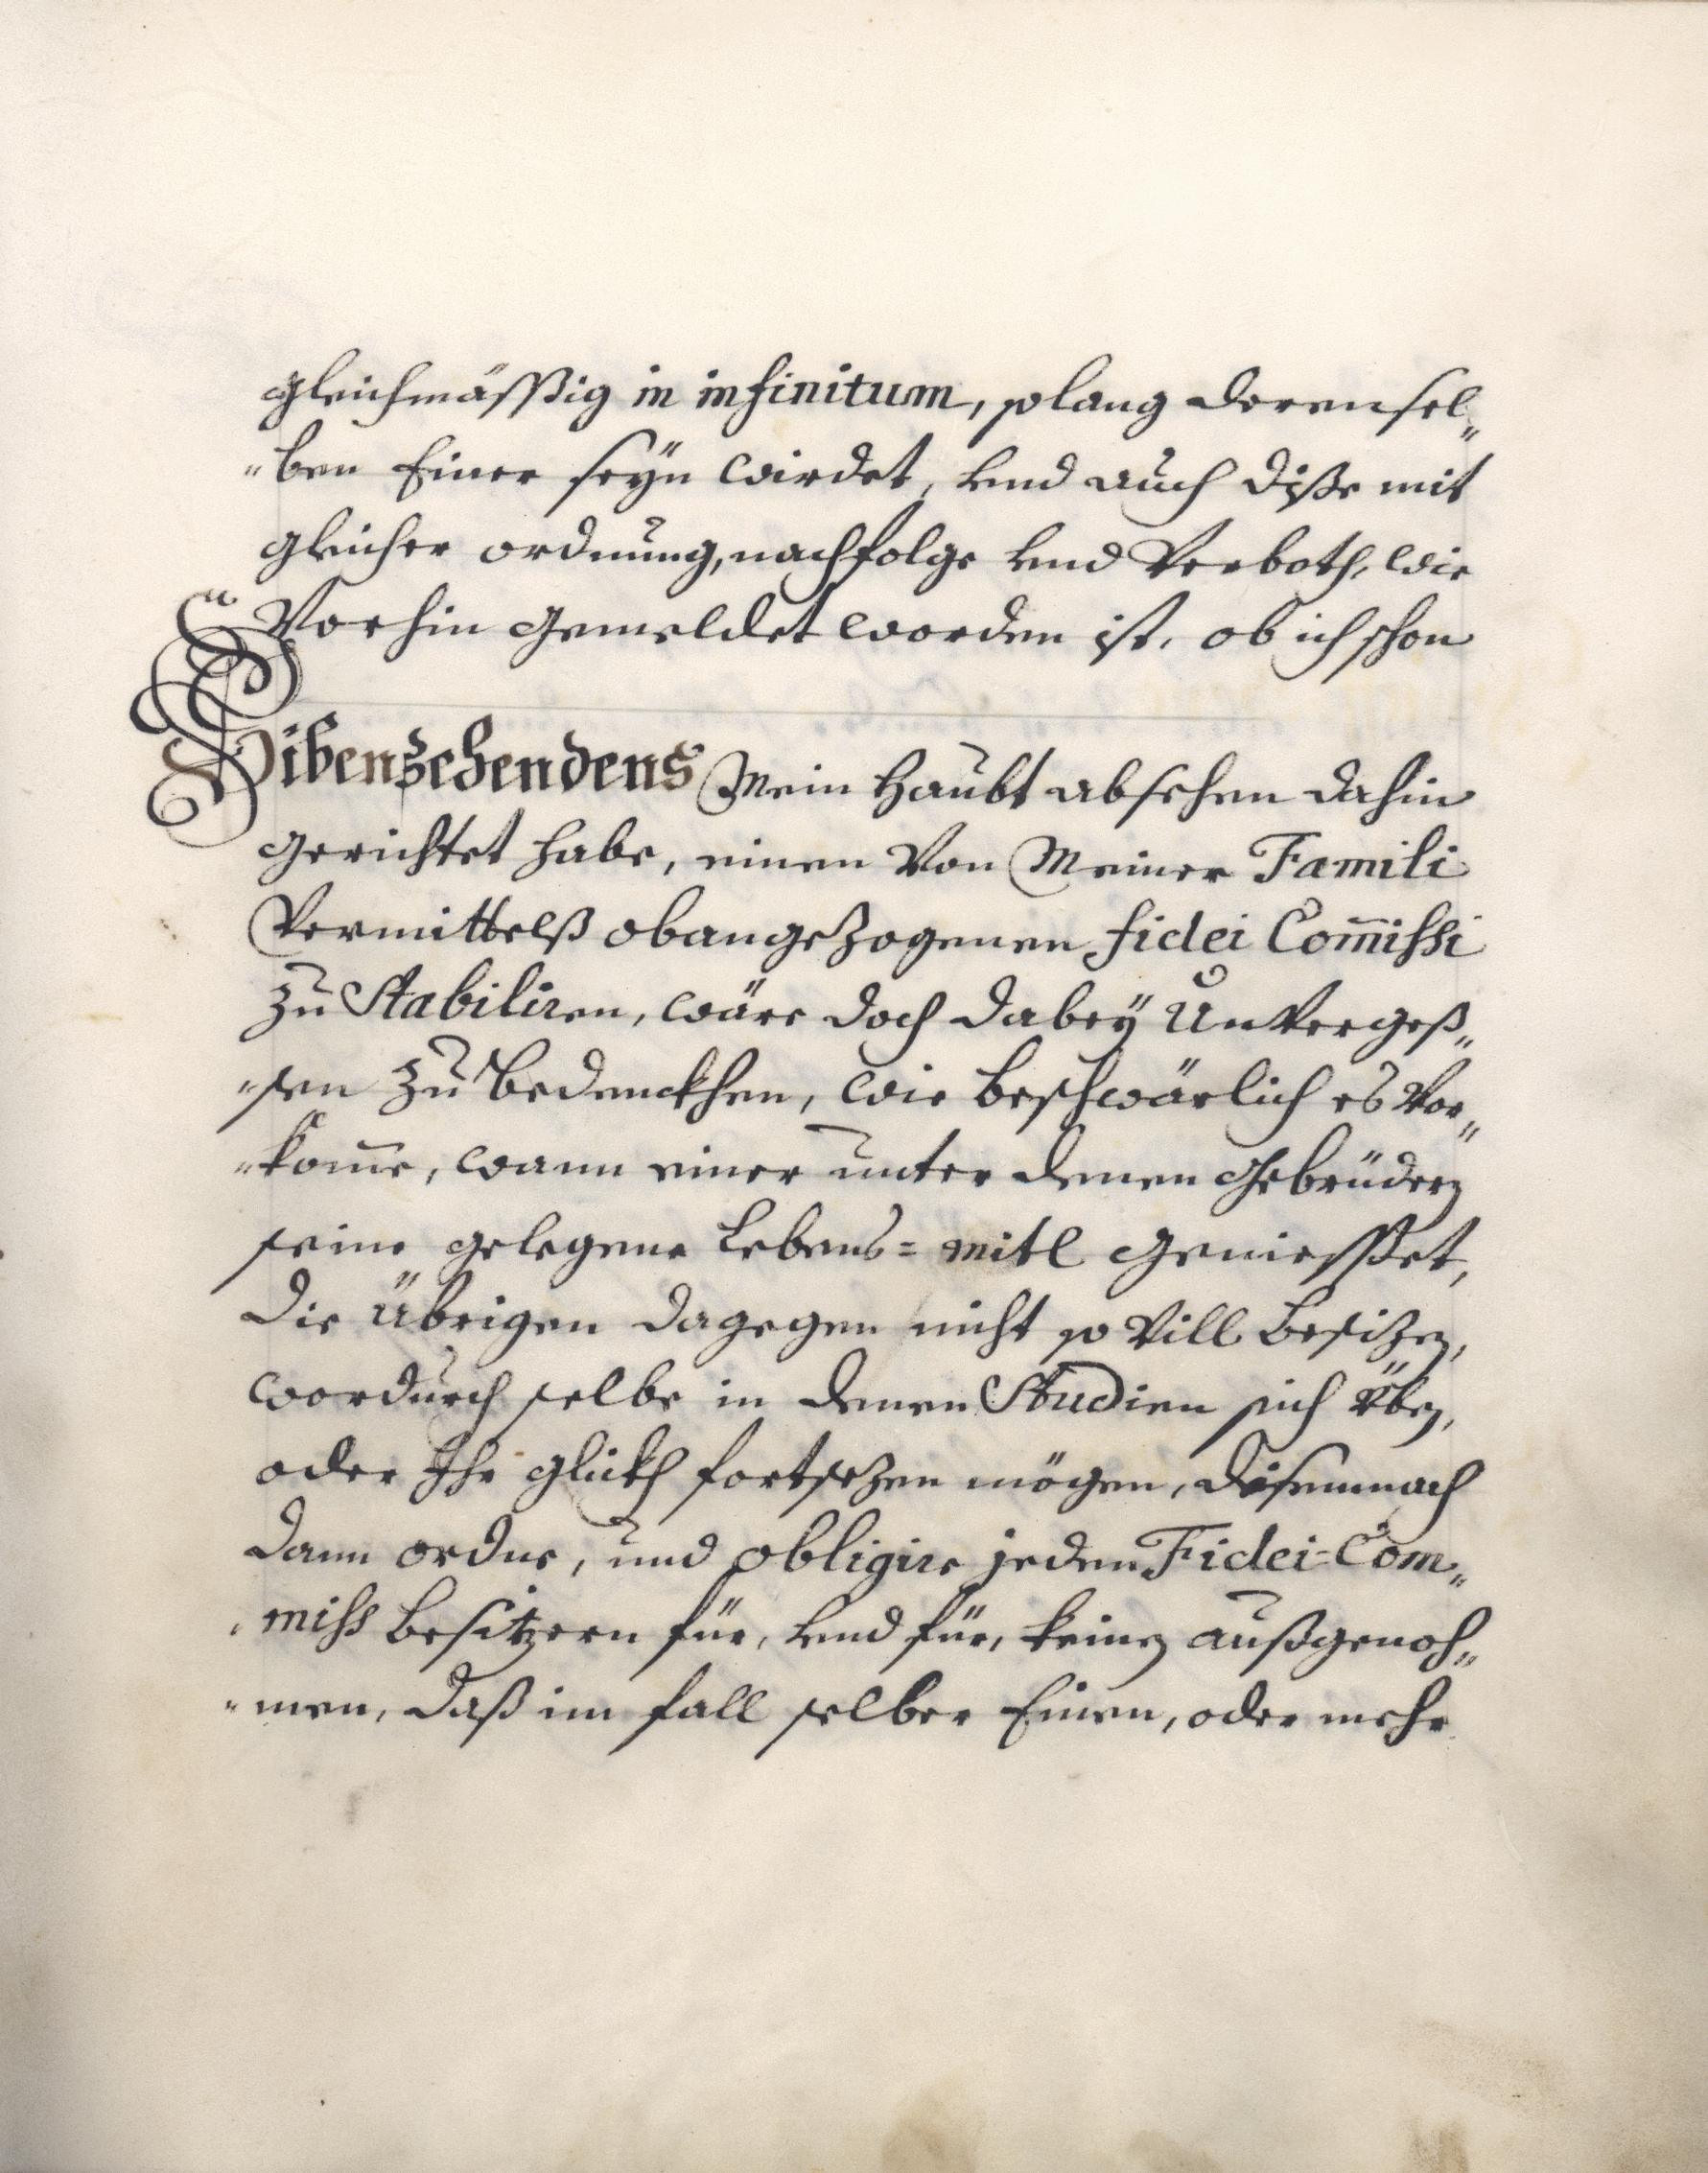 gleichmässig in infinitum, solang derensel„
„ben Einer seÿn wirdet, vnd auch diße mit
gleicher ordnung, nachfolge vnd Verboth, wie
Vorhin gemeldet worden ist, ob ich schon
Sibenzehendens Mein Haubt absehen dahin
gerichtet habe, einen Von Meiner Famili
Vermittelß obangezogenen fidei Com̄issi
zu Stabiliren, wäre doch dabeÿ Unvergeß„
„sen zu bedenckhen, wie beschwärlich es vor„
„kom̄e, wann einer unter denen Gebrüdern
seine gelegene Lebens= mitl geniesset,
die übrigen dagegen nicht so vill besizen,
wordurch selbe in denen Studien sich üben,
oder Ihr glückh fortsezen mögen, disemnach
dann ordne, und obligire jeden Fidei=Com„
„miss besitzern für, vnd für, keinen außgenoh„
„men, daß im fall selber Einen, oder mehr